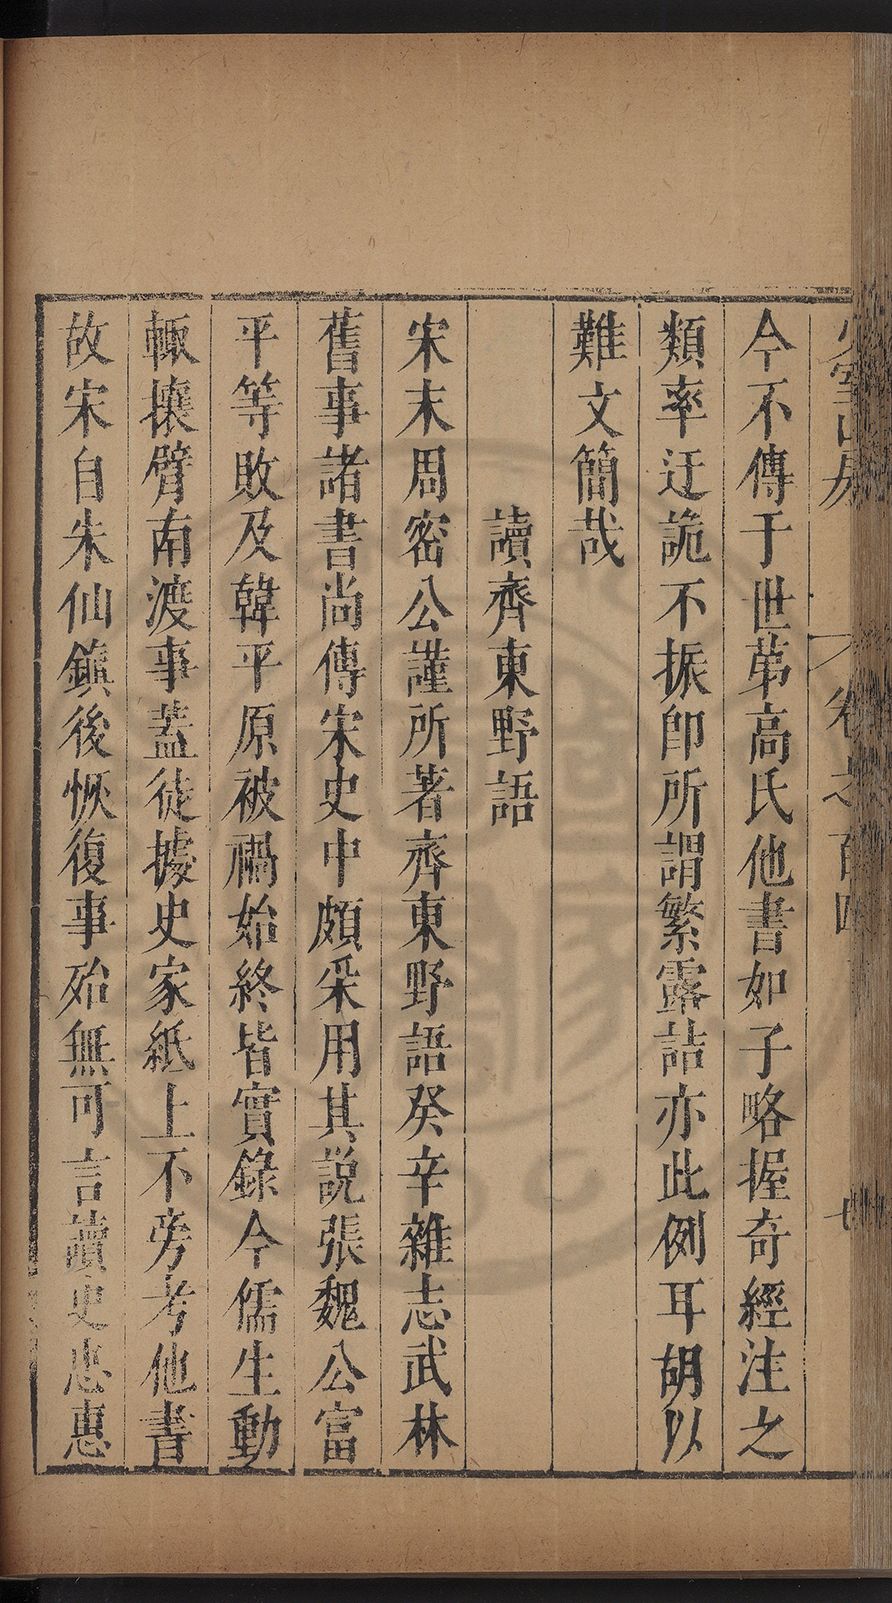 少室山房 卷之百四 七
今不傳于世苐高氏他書如子略握奇經注之
類率迂詭不振卽所謂繁露詰亦此例耳胡以
難文簡哉
讀齊東野語
宋末周密公謹所著齊東野語癸辛雜志武林
舊事諸書尚傳宋史中頗采用其說張魏公富
平等敗及韓平原被禍始終皆實錄今儒生動
輙攘臂南渡事葢徒據史家紙上不旁考他書
故宋自朱仙鎮後恢復事殆無可言讀史忠惠